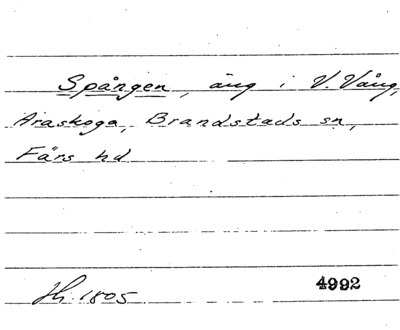 Spången, äng i V. Vång,
Araskoga, Brandstads sn,
Färs hd
Hi. 1805 4992